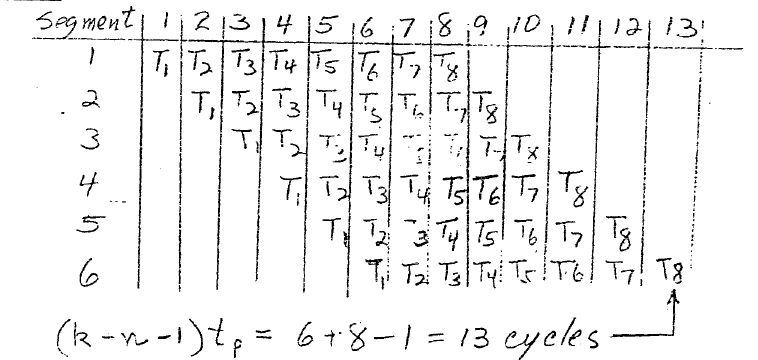 Segment 1 2 3 4 5 6 7 8 9 10 11 12 13
1 T₁ T₂ T₃ T₄ T₅ T₆ T₇ T₈
2 T₁ T₂ T₃ T₄ T₅ T₆ T₇ T₈
3 T₁ T₂ T₃ T₄ T₇ T₈
4 T₁ T₂ T₃ T₄ T₅ T₆ T₇ T₈
5 T₁ T₂ T₃ T₄ T₅ T₆ T₇ T₈
6 T₁ T₂ T₃ T₄ T₅ T₆ T₇ T₈
(k-n-1)tₚ = 6+8-1 = 13 cycles